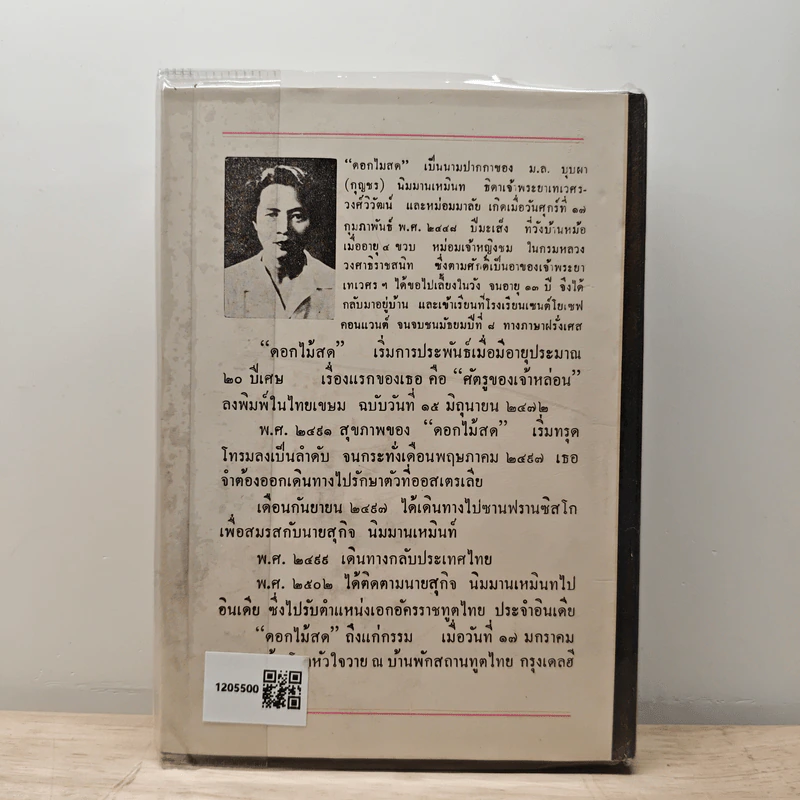 “ดอกไม้สด” เป็นนามปากกาของ ม.ล. บุบผา
(กุญชร) นิมมานเหมินท ธิดาเจ้าพระยาเทเวศร-
วงศ์วิวัฒน์ และหม่อมมาลัย เกิดเมื่อวันศุกร์ที่ ๑๗
กุมภาพันธ์ พ.ศ. ๒๔๔๘ ปีมะเส็ง ที่วังบ้านหม้อ
เมื่ออายุ ๔ ขวบ หม่อมเจ้าหญิงชม ในกรมหลวง
วงศาธิราชสนิท ซึ่งตามศักดิ์เป็นอาของเจ้าพระยา
เทเวศร ฯ ได้ขอไปเลี้ยงในวัง จนอายุ ๑๓ ปี จึงได้
กลับมาอยู่บ้าน และเข้าเรียนที่โรงเรียนเซนต์โยเซฟ
คอนแวนต์ จนจบชั้นมัธยมปีที่ ๘ ทางภาษาฝรั่งเศส
“ดอกไม้สด” เริ่มการประพันธ์เมื่อมีอายุประมาณ
๒๐ ปีเศษ เรื่องแรกของเธอ คือ “ศัตรูของเจ้าหล่อน”
ลงพิมพ์ในไทยเขษม ฉบับวันที่ ๑๕ มิถุนายน ๒๔๗๒
พ.ศ. ๒๔๙๑ สุขภาพของ “ดอกไม้สด” เริ่มทรุด
โทรมลงเป็นลำดับ จนกระทั่งเดือนพฤษภาคม ๒๔๙๗ เธอ
จำต้องออกเดินทางไปรักษาตัวที่ออสเตรเลีย
เดือนกันยายน ๒๔๙๗ ได้เดินทางไปซานฟรานซิสโก
เพื่อสมรสกับนายสุกิจ นิมมานเหมินท์
พ.ศ. ๒๔๙๙ เดินทางกลับประเทศไทย
พ.ศ. ๒๕๐๒ ได้ติดตามนายสุกิจ นิมมานเหมินทไป
อินเดีย ซึ่งไปรับตำแหน่งเอกอัครราชทูตไทย ประจำอินเดีย
“ดอกไม้สด” ถึงแก่กรรม เมื่อวันที่ ๑๗ มกราคม
หัวใจวาย ณ บ้านพักสถานทูตไทย กรุงเดลฮี
1205500